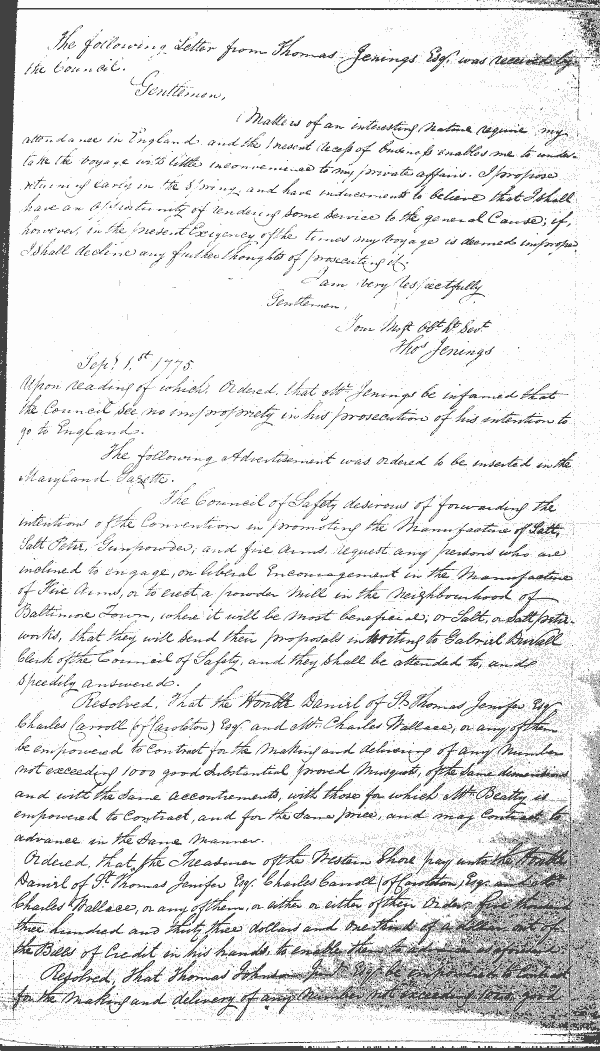 The following Letter from Thomas Jenings Esqr. was received by
the Council.
Gentlemen,
Matters of an interesting nature require my
attendance in England and the present recess of business enables me to under-
take the voyage with little inconvenience to my private affairs. I propose
returning early in the Spring, and have inducements to believe that I shall
have an opportunity of rendering some service to the general Cause; if,
however, in the present Exigency of the times my voyage is deemed improper
I shall decline any further thoughts of prosecuting it.
I am very respectfully
Gentlemen,
Your Most Obt. H. Servt.
Thos. Jenings
Sept. 1.st 1775.
Upon reading of which, Ordered, that Mr. Jenings be informed that
the Council see no impropriety in his prosecution of his intention to
go to England.
The following Advertisement was ordered to be inserted in the
Maryland Gazette.
The Council of Safety desirous of forwarding the
intentions of the Convention in promoting the Manufacture of Salt,
Salt Peter, Gunpowder, and fire Arms, request any persons who are
inclined to engage, on liberal Encouragement in the Manufacture
of Fire Arms, or to erect a powder Mill in the neighbourhood of
Baltimore Town, where it will be most beneficial; or Salt, or Salt petre-
works, that they will send their proposals in writing to Gabriel Duvall
Clerk of the Council of Safety, and they shall be attended to, and
speedily answered.
Resolved, That the Honble Daniel of St. Thomas Jenifer Esqr.
Charles Carroll (of Carrolton) Esqr. and Mr. Charles Wallace, or any of them
be empowered to Contract for the making and delivering of any Number
not exceeding 1000 good substantial proved Musquets, of the same dimentions
and with the same accoutrements, with those for which Mr. Beatty is
empowered to Contract, and for the same price, and may Contract to
advance in the same manner.
Ordered, that the Treasurer of the Western Shore pay unto the Honble
Daniel of St. Thomas Jenifer Esqr. Charles Carroll (of Carrolton) Esqr. and Mr.
Charles Wallace, or any of them, or either of their Order, five thousand
three hundred and thirty three dollars and one third of a dollar out of
the Bills of Credit in his hands, to enable them to advance as aforesaid.
Resolved, That Thomas Johnson Junr. Esqr. be empowered to Contract
for the making and delivery of any Number not exceeding 1000 good